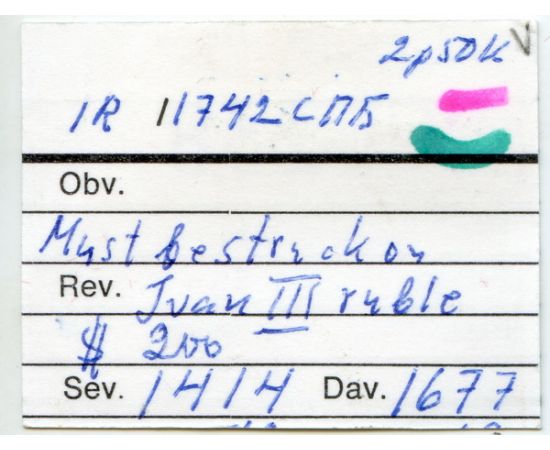 2р50к V
1R 11742СПБ
Obv.
Must be struck on
Rev. Ivan III ruble
$ 200
Sev. 1414 Dav. 1677